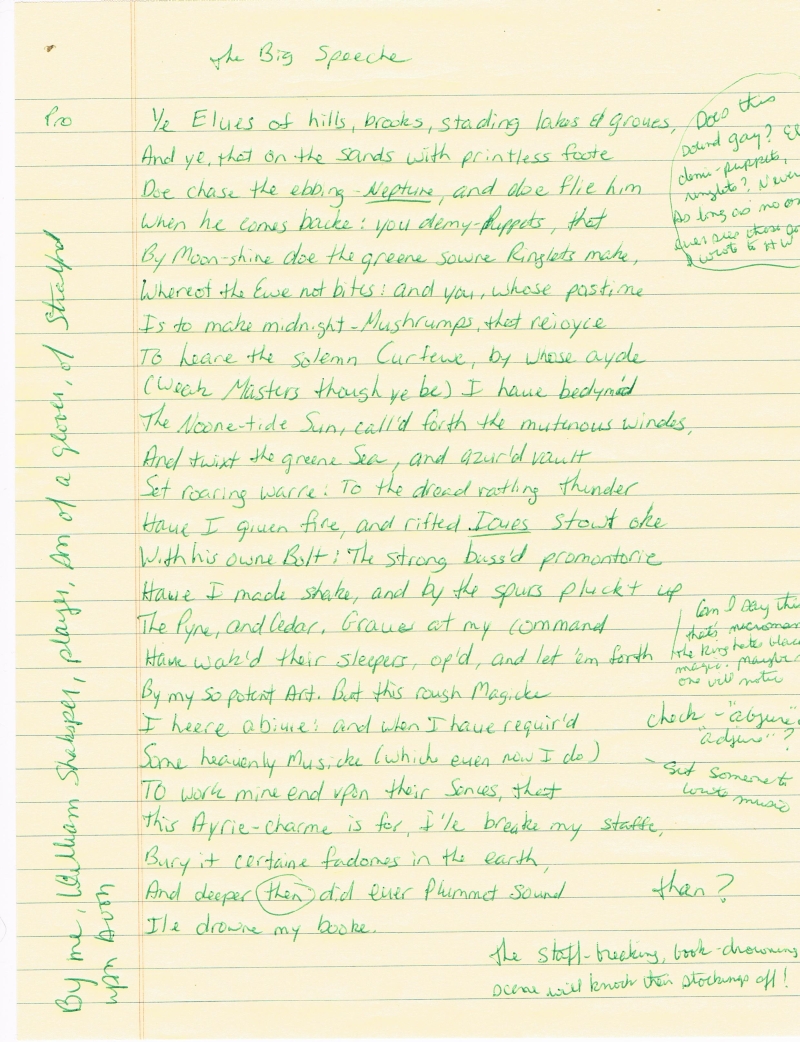 The Big Speeche
Pro
Ye Elues of hills, brooks, stading lakes & groues,
And ye, that on the sands with printless foote
Doe chase the ebbing-Neptune, and doe flie him
When he comes backe: you demy-Puppets, that
By Moon-shine doe the greene sowre Ringlets make,
Whereof the Ewe not bites: and you, whose pastime
Is to make midnight-Mushrumps, that reioyce
To heare the solemn Curfewe, by whose ayde
(Weak Masters though ye be) I haue bedymn'd
The Noone-tide Sun, call'd forth the mutenous windes,
And twixt the greene Sea, and azur'd vault
Set roaring warre: To the dread ratling thunder
Haue I giuen fire, and rifted Ioues stowt oke
With his owne Bolt: The strong bass'd promontorie
Haue I made shake, and by the spurs pluckt up
The Pyne, and Cedar. Graues at my command
Haue wak'd their sleepers, op'd, and let 'em forth
By my so potent Art. But this rough Magicke
I heere abiure: and when I haue requir'd
Some heauenly Musicke (which euen now I do)
To work mine end vpon their Sences, that
This Ayrie-charme is for, I'le breake my staffe,
Bury it certaine fadomes in the earth,
And deeper then did euer Plummet sound
Ile drowne my booke.
Does this
sound gay?
demi-puppets,
ringlets? Never
As long as no one
ever sees those
I wrote to HW
Can I say this
that's necroman
the King hates black
magic. maybe
one will notice
check - "abjure"
"adjure"?
Get someone to
write music
than?
The staff-breaking, book-drowning
scene will knock their stockings off!
By me, William Shaksper, player, son of a glover, of Stratford
upon Avon